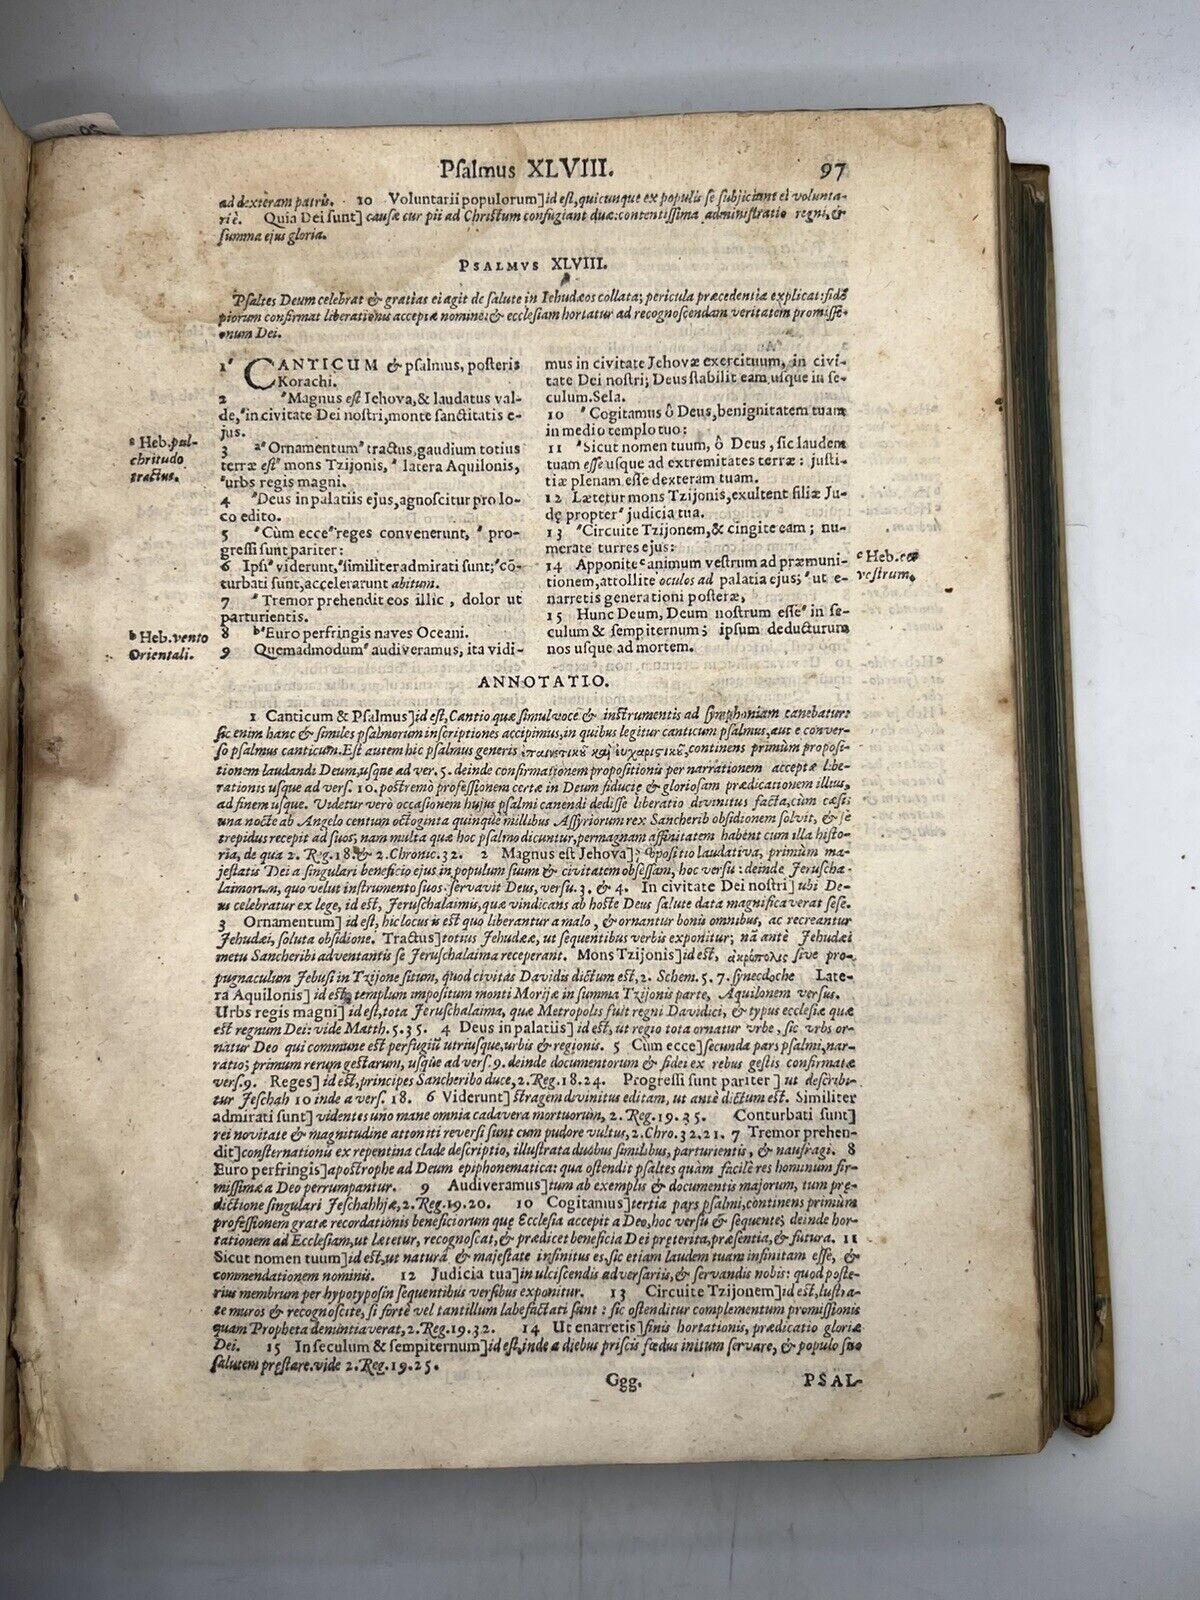 Psalmus XLVIII. 97
ad dexteram patris. 10 Voluntarii populorum] id est, quicunque ex populis se subjiciunt ei volunta-
riè. Quia Dei sunt] causæ cur pii ad Christum confugiant duæ: contentissima administratio regni, &
summa ejus gloria.
PSALMVS XLVIII.
Psaltes Deum celebrat & gratias ei agit de salute in Iehudæos collata; pericula præcedentia explicat: fidē
piorum confirmat liberationis acceptæ nomine: & ecclesiam hortatur ad recognoscendam veritatem promissi-
onum Dei.
1 CANTICUM & psalmus, posteris
Korachi.
2 Magnus est Iehova, & laudatus val-
de, in civitate Dei nostri, monte sanctitatis e-
jus.
a Heb. pul-
chritudo
tractus.
3 a Ornamentum tractus, gaudium totius
terræ est mons Tzijonis, latera Aquilonis,
urbs regis magni.
4 Deus in palatiis ejus, agnoscitur pro lo-
co edito.
5 Cùm ecce reges convenerunt, pro-
gressi sunt pariter:
6 Ipsi viderunt, similiter admirati sunt; cō-
turbati sunt, accelerarunt abitum.
7 Tremor prehendit eos illic, dolor ut
parturientis.
b Heb. vento
Orientali.
8 b Euro perfringis naves Oceani.
9 Quemadmodum audiveramus, ita vidi-
mus in civitate Jehovæ exercituum, in civi-
tate Dei nostri; Deus stabilit eam, usque in se-
culum. Sela.
10 Cogitamus ô Deus, benignitatem tuam
in medio templo tuo:
11 Sicut nomen tuum, ô Deus, sic laudem
tuam esse usque ad extremitates terræ: justi-
tiæ plenam esse dexteram tuam.
12 Lætetur mons Tzijonis, exultent filiæ Ju-
dę propter judicia tua.
13 Circuite Tzijonem, & cingite eam; nu-
merate turres ejus:
14 Apponite c animum vestrum ad præmuni-
tionem, attollite oculos ad palatia ejus; ut e-
narretis generationi posteræ,
c Heb. cor
vestrum.
15 Hunc Deum, Deum nostrum esse in se-
culum & sempiternum; ipsum deducturum
nos usque ad mortem.
ANNOTATIO.
1 Canticum & Psalmus] id est, Cantio quæ simul voce & instrumentis ad symphoniam canebatur:
sic enim hanc & similes psalmorum inscriptiones accipimus, in quibus legitur canticum psalmus, aut e conver-
so psalmus canticum. Est autem hic psalmus generis ἐπαινετικοῦ καὶ εὐχαριστικοῦ, continens primùm proposi-
tionem laudandi Deum, usque ad ver. 5. deinde confirmationem propositionis per narrationem acceptæ libe-
rationis usque ad vers. 10. postremò professionem certæ in Deum fiducię & gloriosam prædicationem illius,
ad finem usque. Videtur verò occasionem hujus psalmi canendi dedisse liberatio divinitus facta, cùm cæsis
una nocte ab Angelo centum octoginta quinque millibus Assyriorum rex Sancherib obsidionem solvit, & se
trepidus recepit ad suos; nam multa quæ hoc psalmo dicuntur, permagnam affinitatem habent cum illa histo-
ria, de qua 2. Reg. 18. & 2. Chronic. 32. 2 Magnus est Jehova] propositio laudativa, primùm ma-
jestatis Dei a singulari beneficio ejus in populum suum & civitatem obsessam, hoc versu: deinde Jeruscha-
laimorum, quo velut instrumento suos servavit Deus, versu. 3. & 4. In civitate Dei nostri] ubi De-
us celebratur ex lege, id est, Jeruschalaimis, quæ vindicans ab hoste Deus salute data magnificaverat sese.
3 Ornamentum] id est, hic locus is est quo liberantur a malo, & ornantur bonis omnibus, ac recreantur
Jehudæi, soluta obsidione. Tractus] totius Jehudææ, ut sequentibus verbis exponitur; nā antè Jehudæi
metu Sancheribi adventantis se Jeruschalaima receperant. Mons Tzijonis] id est, ἀκρόπολις sive pro-
pugnaculum Jebusi in Tzijone situm, quod civitas Davidis dictum est, 2. Schem. 5. 7. synecdoche Late-
ra Aquilonis] id est, templum impositum monti Morijæ in summa Tzijonis parte, Aquilonem versus.
Urbs regis magni] id est, tota Jeruschalaima, quæ Metropolis fuit regni Davidici, & typus ecclesiæ quæ
est regnum Dei: vide Matth. 5. 35. 4 Deus in palatiis] id est, ut regio tota ornatur urbe, sic urbs or-
natur Deo qui commune est perfugiū utriusque, urbis & regionis. 5 Cùm ecce] secunda pars psalmi, nar-
ratio; primum rerum gestarum, usque ad vers. 9. deinde documentorum & fidei ex rebus gestis confirmatæ
vers. 9. Reges] id est, principes Sancheribo duce, 2. Reg. 18. 24. Progressi sunt pariter] ut describi-
tur Jeschah 10 inde a vers. 18. 6 Viderunt] stragem divinitus editam, ut antè dictum est. Similiter
admirati sunt] videntes uno mane omnia cadavera mortuorum, 2. Reg. 19. 35. Conturbati sunt]
rei novitate & magnitudine attoniti reversi sunt cum pudore vultus, 2. Chro. 32. 21. 7 Tremor prehen-
dit] consternationis ex repentina clade descriptio, illustrata duobus similibus, parturientis, & naufragi. 8
Euro perfringis] apostrophe ad Deum epiphonematica: qua ostendit psaltes quàm facilè res hominum fir-
missimæ a Deo perrumpantur. 9 Audiveramus] tum ab exemplis & documentis majorum, tum prę-
dictione singulari Jeschahhjæ, 2. Reg. 19. 20. 10 Cogitamus] tertia pars psalmi, continens primùm
professionem gratæ recordationis beneficiorum quę Ecclesia accepit a Deo, hoc versu & sequente; deinde hor-
tationem ad Ecclesiam, ut lætetur, recognoscat, & prædicet beneficia Dei pręterita, præsentia, & futura. 11
Sicut nomen tuum] id est, ut naturâ & majestate infinitus es, sic etiam laudem tuam infinitam esse, &
commendationem nominis. 12 Judicia tua] in ulciscendis adversariis, & servandis nobis: quod poste-
rius membrum per hypotyposin sequentibus versibus exponitur. 13 Circuite Tzijonem] id est, lustra-
te muros & recognoscite, si fortè vel tantillum labefactati sunt: sic ostenditur complementum promissionis
quam Propheta denuntiaverat, 2. Reg. 19. 32. 14 Ut enarretis] finis hortationis, prædicatio gloriæ
Dei. 15 In seculum & sempiternum] id est, inde a diebus priscis fœdus initum servare, & populo suo
salutem pręstare. vide 2. Reg. 19. 25.
Ggg. PSAL-